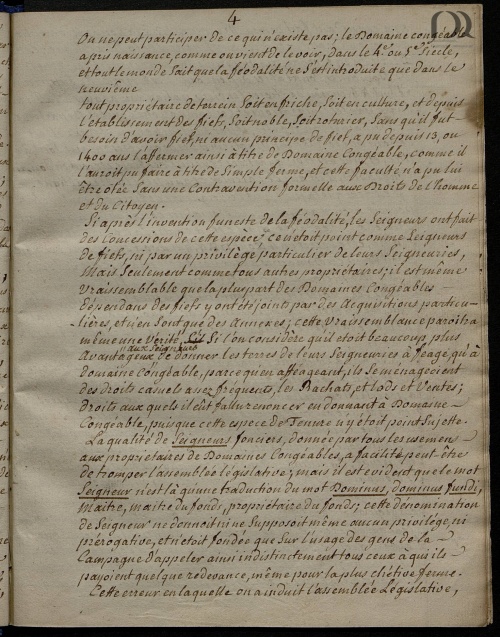 4
On ne peut participer de ce qui n'existe pas; le Domaine congéable
a pris naissance, comme on vient de le voir, dans le 4.e ou 5.e Siecle,
et tout le monde Sait que la féodalité ne S'est introduite que dans le
neuvième
tout propriétaire de terrein Soit en friche, Soit en culture, et depuis
l'établissement des fiefs, Soit noble, Soit roturier, Sans qu'il fut
besoin d'avoir fief, ni aucun principe de fief, a pu depuis 13, ou
1400 ans l'affermer ainsi à titre de Domaine Congéable, comme il
l'auroit pu faire à titre de Simple ferme, et cette faculté n'a pu lui
être otée Sans une Contravention formelle aux Droits de l'homme
et du Citoyen.
Si après l'invention funeste de la féodalité, les Seigneurs ont fait
des Concessions de cette espèce, ce n'étoit point comme Seigneurs
de fiefs, ni par un privilège particulier de leurs Seigneuries,
Mais Seulement comme tous autres propriétaires; il est même
vraisemblable que la plupart des Domaines Congéables
dépendans des fiefs y ont été joints par des Acquisitions particu-
lières, et n'en Sont que des Annexes; cette vraisemblance paroitra
même une vérité, Si l'on considère qu'il étoit beaucoup plus
aux Seigneurs
Avantageux de donner les terres de leurs Seigneuries à féage, qu'à
domaine Congéable, parce qu'en afféageant, ils Se ménageoient
des droits casuels assez fréquents, les Rachats, et lods et Ventes;
droits aux quels il eut fallu renoncer en donnant à Domaine
Congéable, puisque cette espece de Tenure n'y étoit point Sujette.
La qualité de Seigneurs fonciers, donnée par tous les usemens
aux propriétaires de Domaines Congéables, a facilité peut être
de tromper l'assemblée législative; mais il est évident que le mot
Seigneur n'est là qu'une traduction du mot Dominus, dominus fundi,
Maitre, maitre du fonds, propriétaire du fonds; cette dénomination
de Seigneur ne donnoit ni ne Supposoit même aucun privilège, ni
prérogative, et n'étoit fondée que Sur l'usage des gens de la
Campagne d'appeler ainsi indistinctement tous ceux à qui ils
payoient quelque redevance, même pour la plus chétive ferme.
Cette erreur en laquelle on a induit l'assemblée Législative,